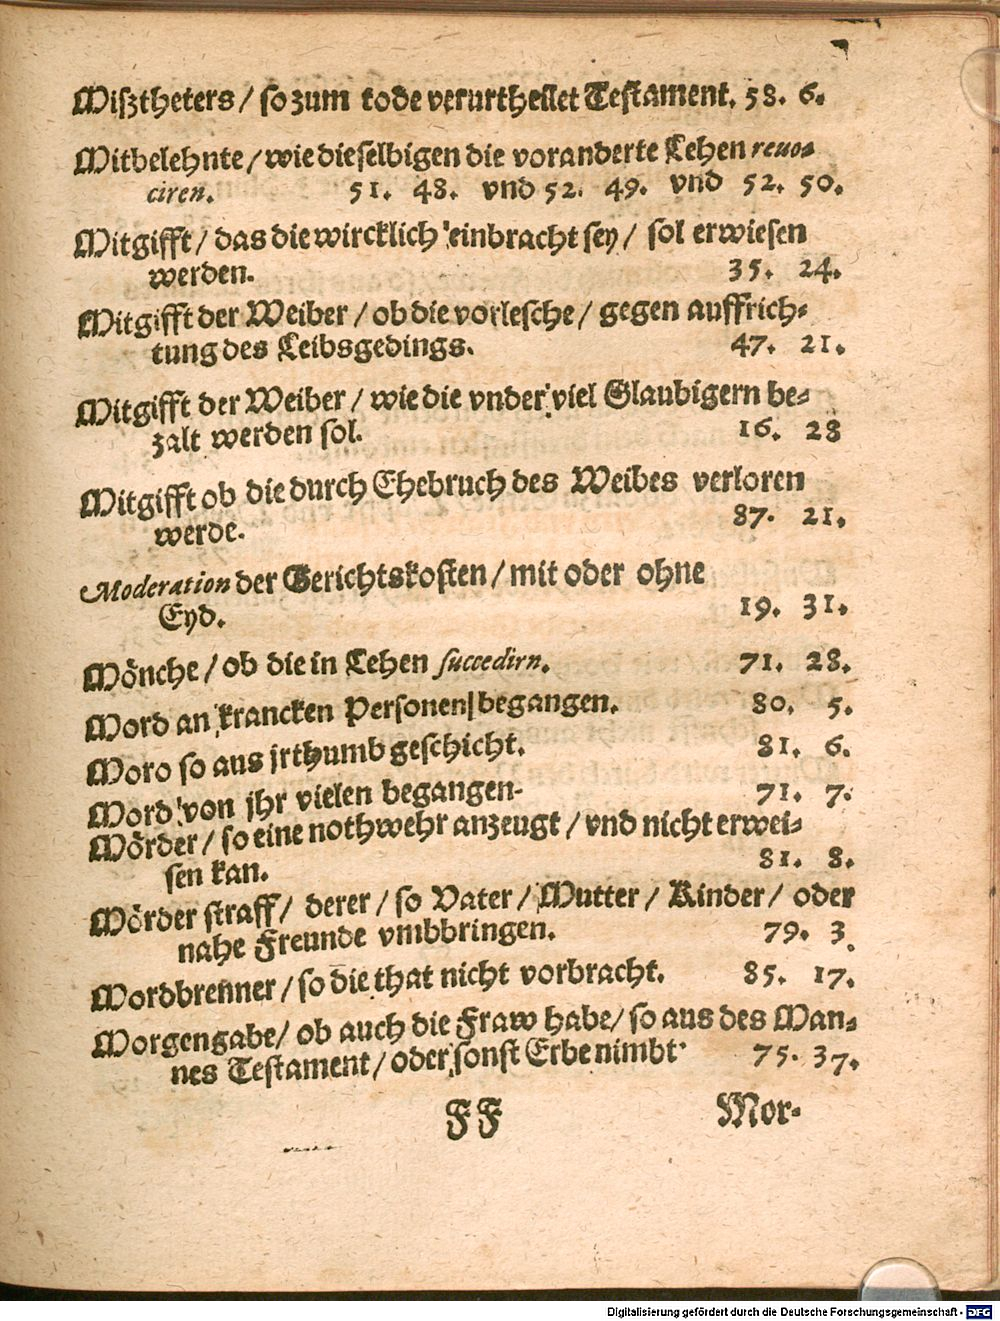 Miſztheters / ſo zum tode verurtheilet Teſtament. 58. 6.
Mitbelehnte / wie dieſelbigen die voranderte Lehen revo⸗
ciren. 51. 48. vnd 52. 49. vnd 52. 50.
Mitgifft / das die wircklich einbracht ſey / ſol erwieſen
werden. 35. 24.
Mitgifft der Weiber / ob die vorleſche / gegen auffrich⸗
tung des Leibsgedings. 47. 21.
Mitgifft der Weiber / wie die vnder viel Glaubigern be⸗
zalt werden ſol. 16. 28
Mitgifft ob die durch Ehebruch des Weibes verloren
werde. 87. 21.
Moderation der Gerichtskoſten / mit oder ohne
Eyd. 19. 31.
Mönche / ob die in Lehen ſuccedirn. 71. 28.
Mord an krancken Perſonen begangen. 80. 5.
Moro ſo aus jrthumb geſchicht. 81. 6.
Mord von jhr vielen begangen. 71. 7.
Mörder / ſo eine nothwehr anzeugt / vnd nicht erwei⸗
ſen kan. 81. 8.
Mörder ſtraff / derer / ſo Vater / Mutter / Kinder / oder
nahe Freunde vmbbringen. 79. 3.
Mordbrenner / ſo die that nicht vorbracht. 85. 17.
Morgengabe / ob auch die Fraw habe / ſo aus des Man⸗
nes Teſtament / oder ſonſt Erbe nimbt. 75. 37.
FF Mor⸗
Digitalisierung gefördert durch die Deutsche Forschungsgemeinschaft - DFG